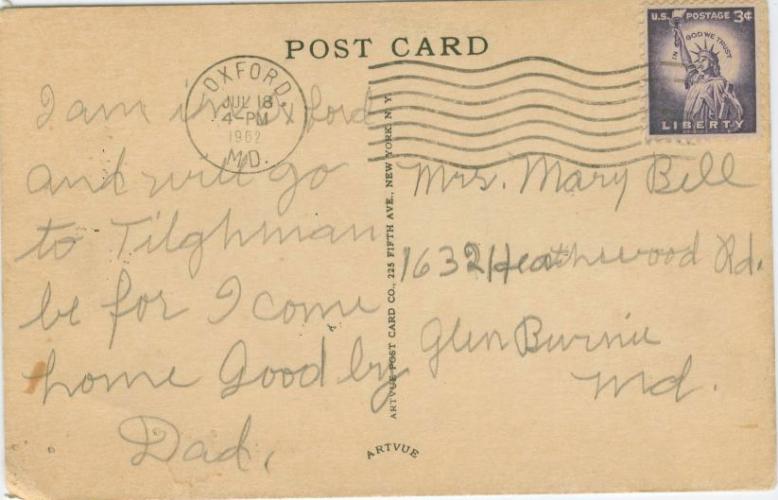 POST CARD
U.S. POSTAGE 3¢
IN GOD WE TRUST
LIBERTY
OXFORD,
JUL 18
4-PM
1962
MD.
I am in oxford
and will go
to Tilghman
be for I come
home Good by
Dad,
ARTVUE POST CARD CO., 225 FIFTH AVE., NEW YORK, N. Y.
ARTVUE
Mrs. Mary Bell
1632 Heathswood Rd.
Glen Burnie
Md.